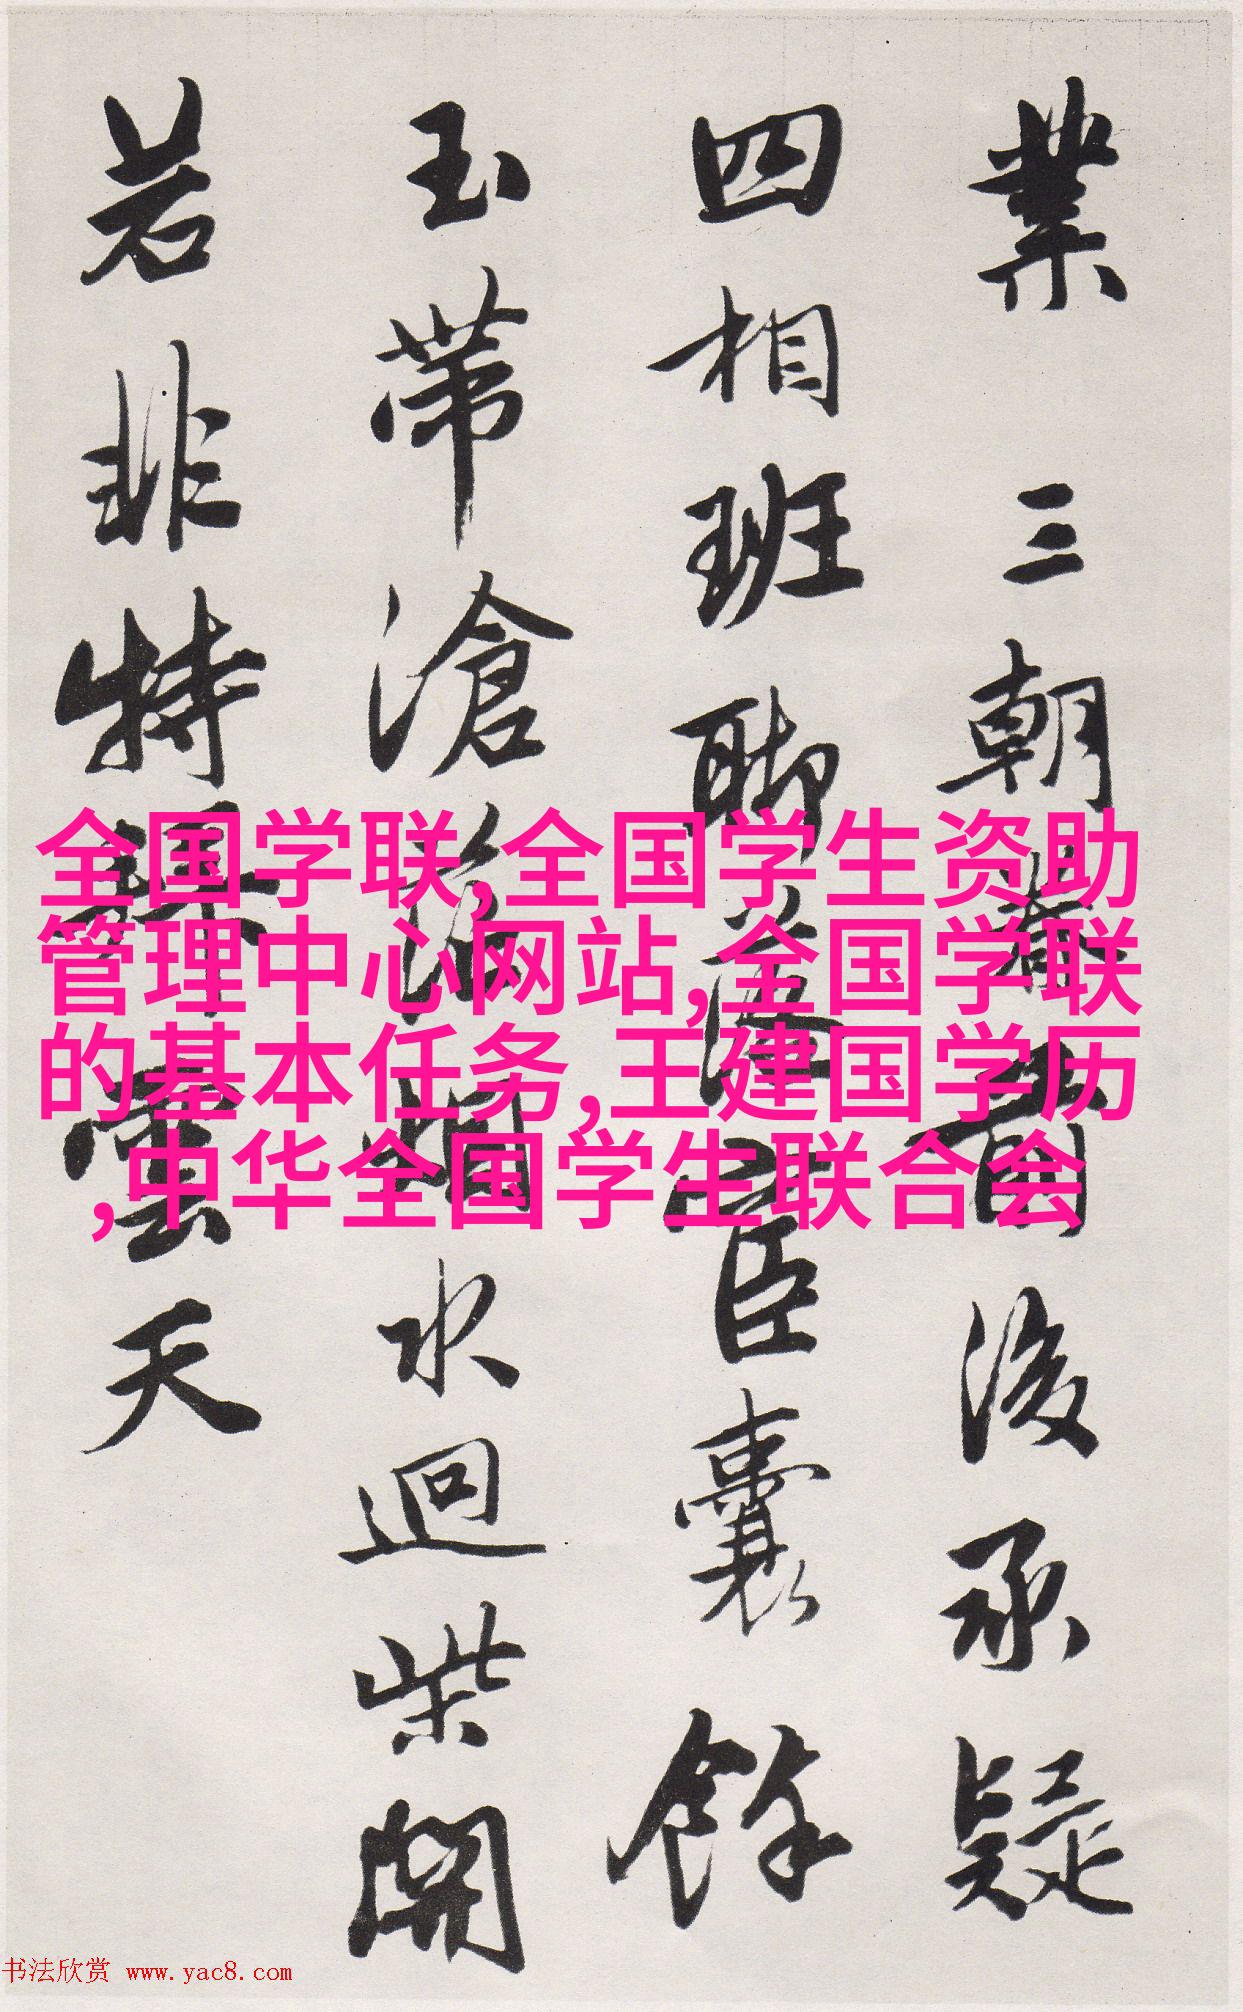 業三朝後承疑
四相班聯臣囊餘
玉帶滄水迴柴開
若非特雲天
全国学联,全国学生资助
管理中心网站,全国学联
的基本任务,王建国学历
,中华全国学生联合会
书法欣赏 www.yac8.com